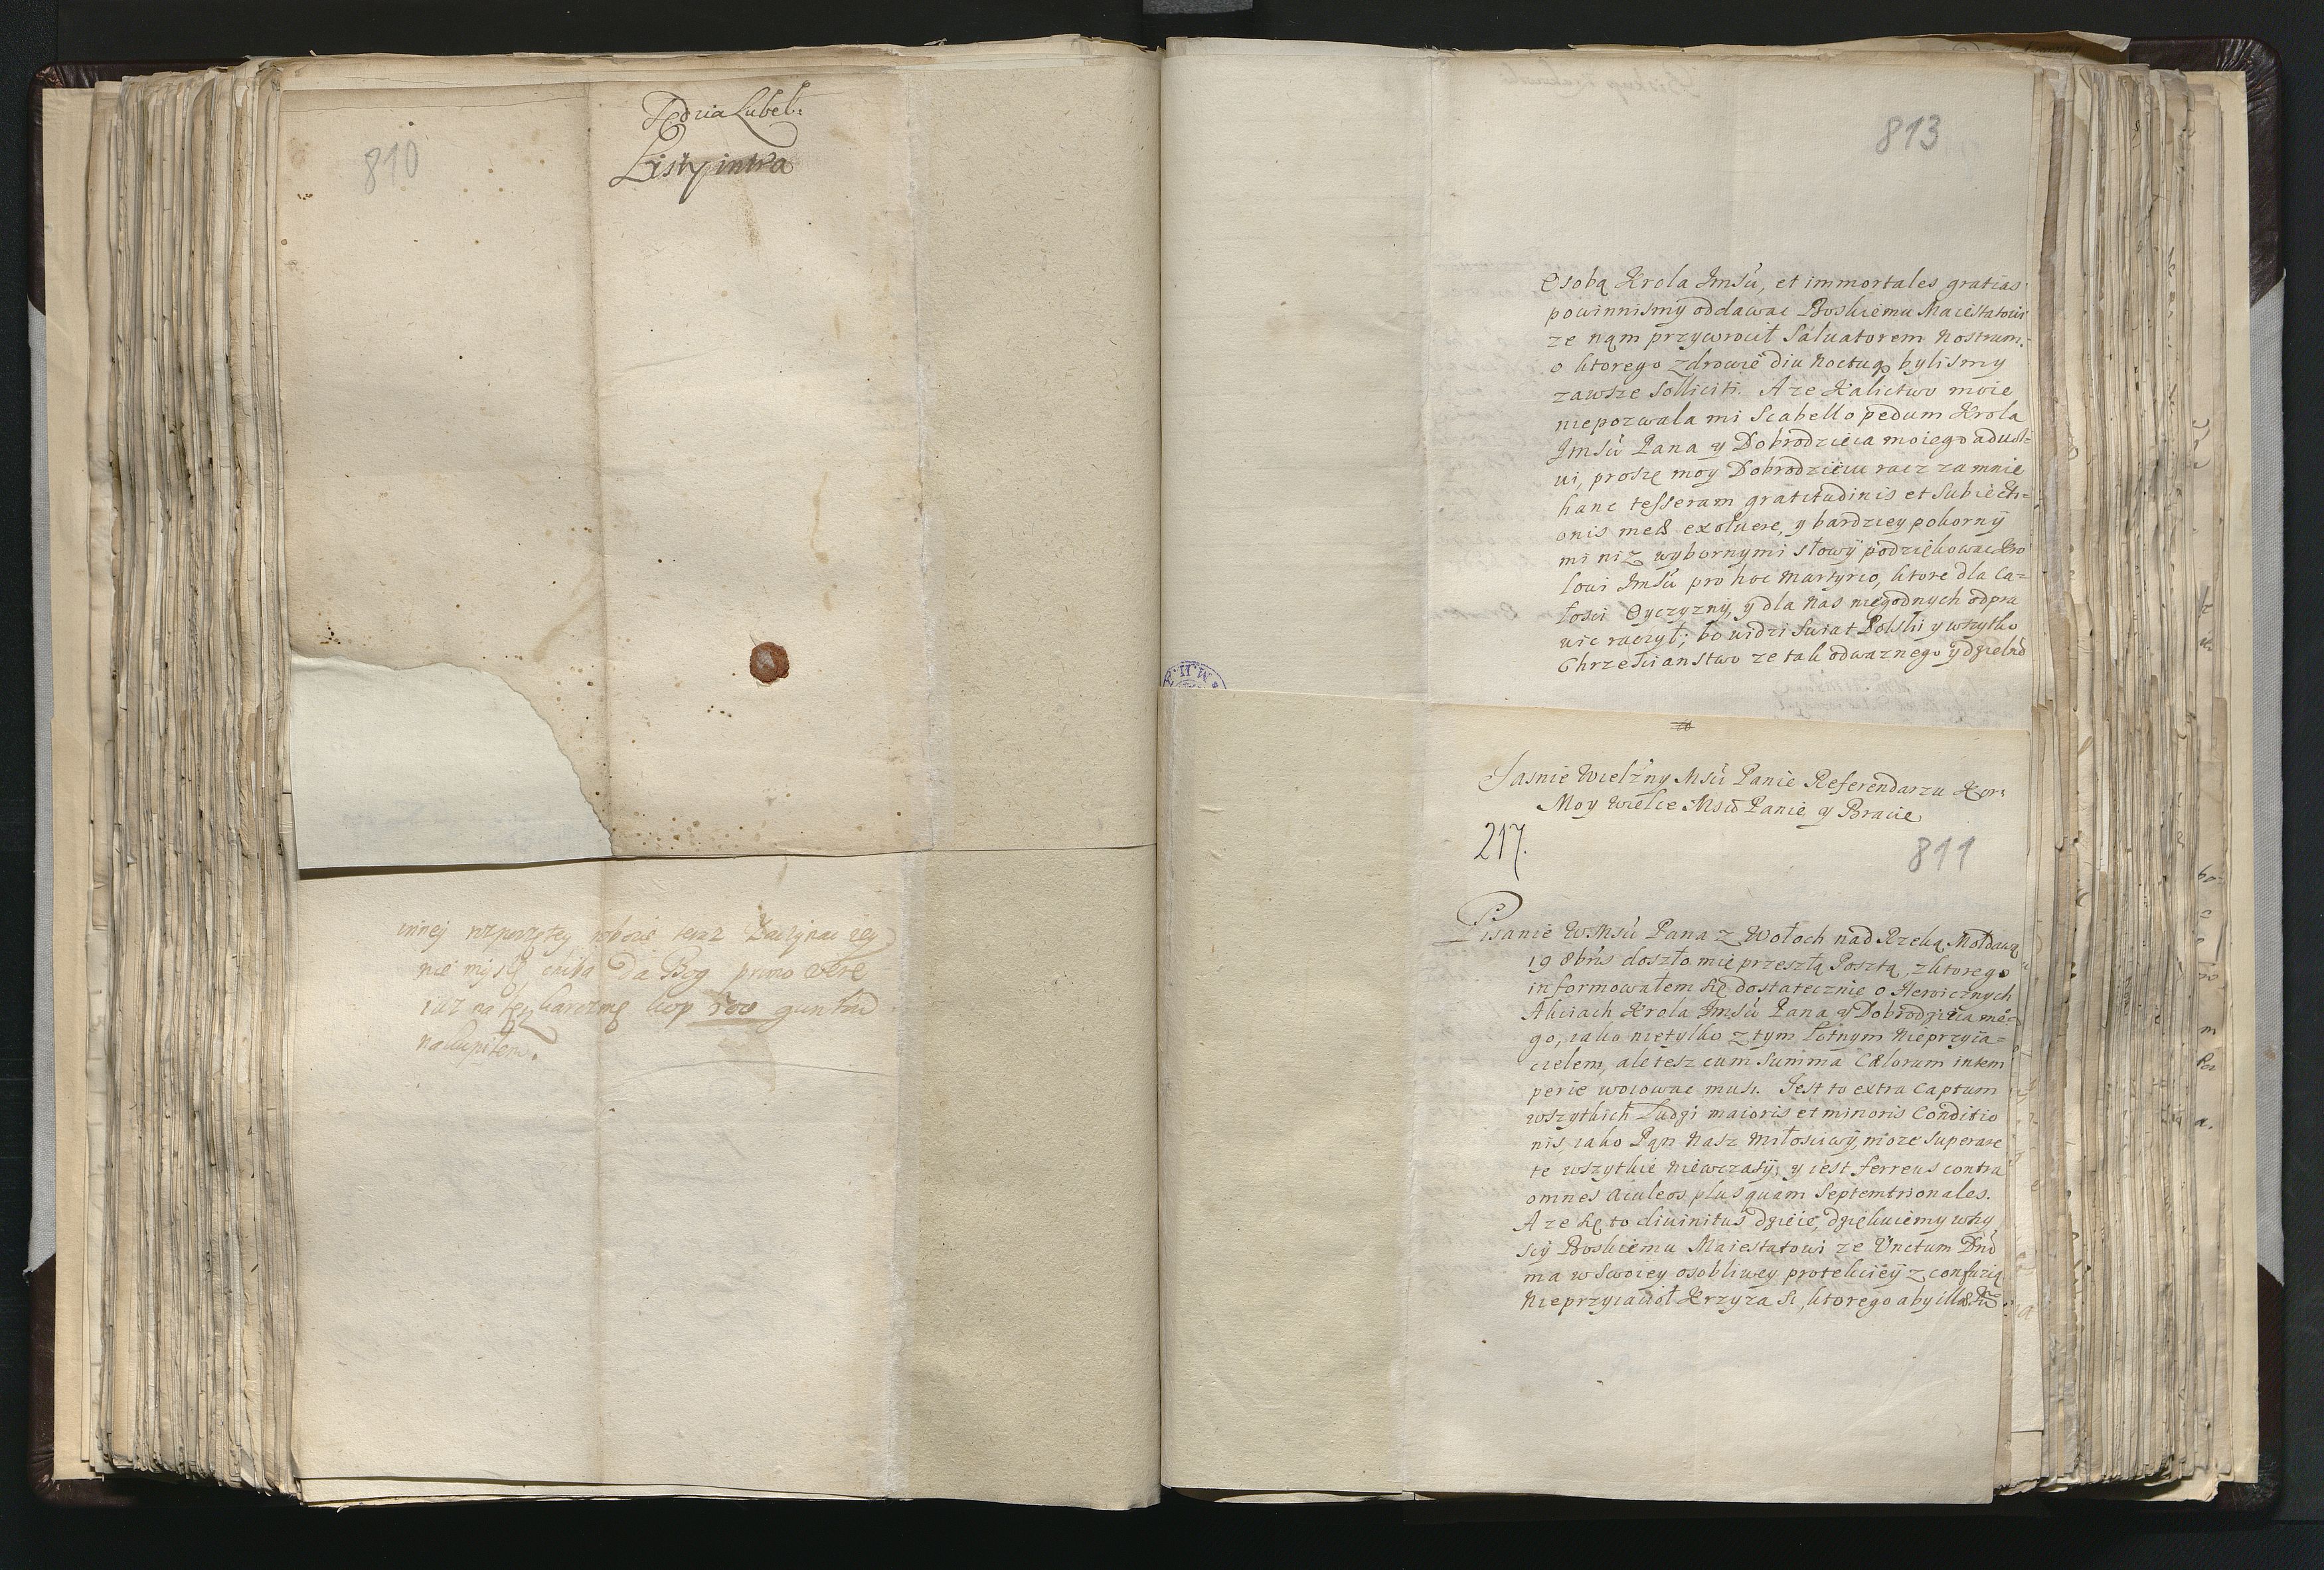 810
Lubel:
Listy
inney rozpoczętey robocie teraz Zaczynac iey
nie myslę chiba Da Bog primo vere
iuz na tę karczmę kop 500 guntbu
nakupiłem.
813
Osobą Krola Jmści, et immortales gratias
powinnismy oddawac Boskiemu Maiestatowi
ze nąm przywrocił Saluatorem Nostrum.
o ktorego zdrowie diu noctuq bylismy
zawsze Solliciti. A ze Kalictwo moie
niepozwala mi Scabello pedum Krola
Jmści Pana y Dobrodzieia moiego aduol-
ui, proszę moy Dobrodzieiu racz za mnie
hanc tesseram gratitudinis et Subiecti-
onis meæ exoluere, y bardziey pokorny
mi niz wybornymi słowy podziękowac Kro
lowi Jmści pro hoc Martyrio, ktore dla ca-
łosci Oyczyzny, y dla nas niegodnych odpra
wic raczył; bo widzi Swiat Polski y wszytko
Chrzescianstwo ze tak odwaznego y dzielnº
Jasnie Wielżny Mści Panie Referendarzu Kor:
Moy Wielce Mści Panie y Bracie
217.
811
Pisanie WMści Pana z Wołoch nad Rzeką Mołdawą
19 8bris doszło mie przeszłą Posztą, z ktorego
informowałem się dostatecznie o Heroicznych
Akciach Krola Jmści Pana y Dobrodzieia me-
go, iako nietylko z tym lotnym Nieprzyia-
cielem, ale tesz cum Summa Cælorum intem
perie woiowac musi. Jest to extra Captum
wszytkich Ludzi maioris et minoris Conditio
nis, iako Pąn Nasz Miłosciwy, moze Superare
te wszytkie niewczasy, y iest ferreus contra
omnes aculeos plusquam Septemtrionales.
A ze się to diuinitus dzieie, dziękuiemy wszy
scy Boskiemu Maiestatowi ze Unctum Dni
ma w Swoiey osobliwey protekciey z confuzią
Nieprzyiacioł Krzyza S., ktorego aby illæsa